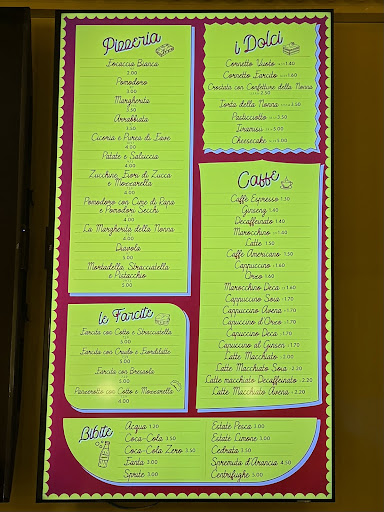 Pizzeria
Focaccia Bianca
2.00
Pomodoro
3.00
Margherita
3.50
Arrabbiata
3.50
Cicoria e Purea di Fave
4.00
Patate e Salsiccia
4.00
Zucchine, Fiori di Zucca
e Mozzarella
4.00
Pomodoro con Cime di Rapa
e Pomodori Secchi
4.00
La Margherita della Nonna
4.00
Diavola
5.00
Mortadella, Stracciatella
e Pistacchio
5.00
le Farcite
Farcita con Cotto e Stracciatella
5.00
Farcita con Crudo e Fiordilatte
5.00
Farcita con Bresaola
5.00
Panzerotto con Cotto e Mozzarella
4.00
i Dolci
Cornetto Vuoto 1.40
Cornetto Farcito 1.60
Crostata con Confetture della Nonna
2.50
Torta della Nonna 3.50
Pasticciotto 3.00
Tiramisu 5.00
Cheesecake 5.00
Caffè
Caffè Espresso 1.30
Ginseng 1.40
Decaffeinato 1.40
Marocchino 1.40
Latte 1.50
Caffè Americano 1.50
Cappuccino 1.60
Orzo 1.60
Marocchino Deca 1.60
Cappuccino Soia 1.70
Cappuccino Avena 1.70
Cappuccino d'Orzo 1.70
Cappuccino Deca 1.70
Cappuccino al Ginsen 1.70
Latte Macchiato 2.00
Latte Macchiato Soia 2.20
Latte macchiato Decaffeinato 2.20
Latte Macchiato Avena 2.20
Bibite
Acqua 1.20
Coca-Cola 3.50
Coca-Cola Zero 3.50
Fanta 3.00
Sprite 3.00
Estate Pesca 3.00
Estate Limone 3.00
Cedrata 3.50
Spremuta d'Arancia 4.50
Centrifughe 5.00